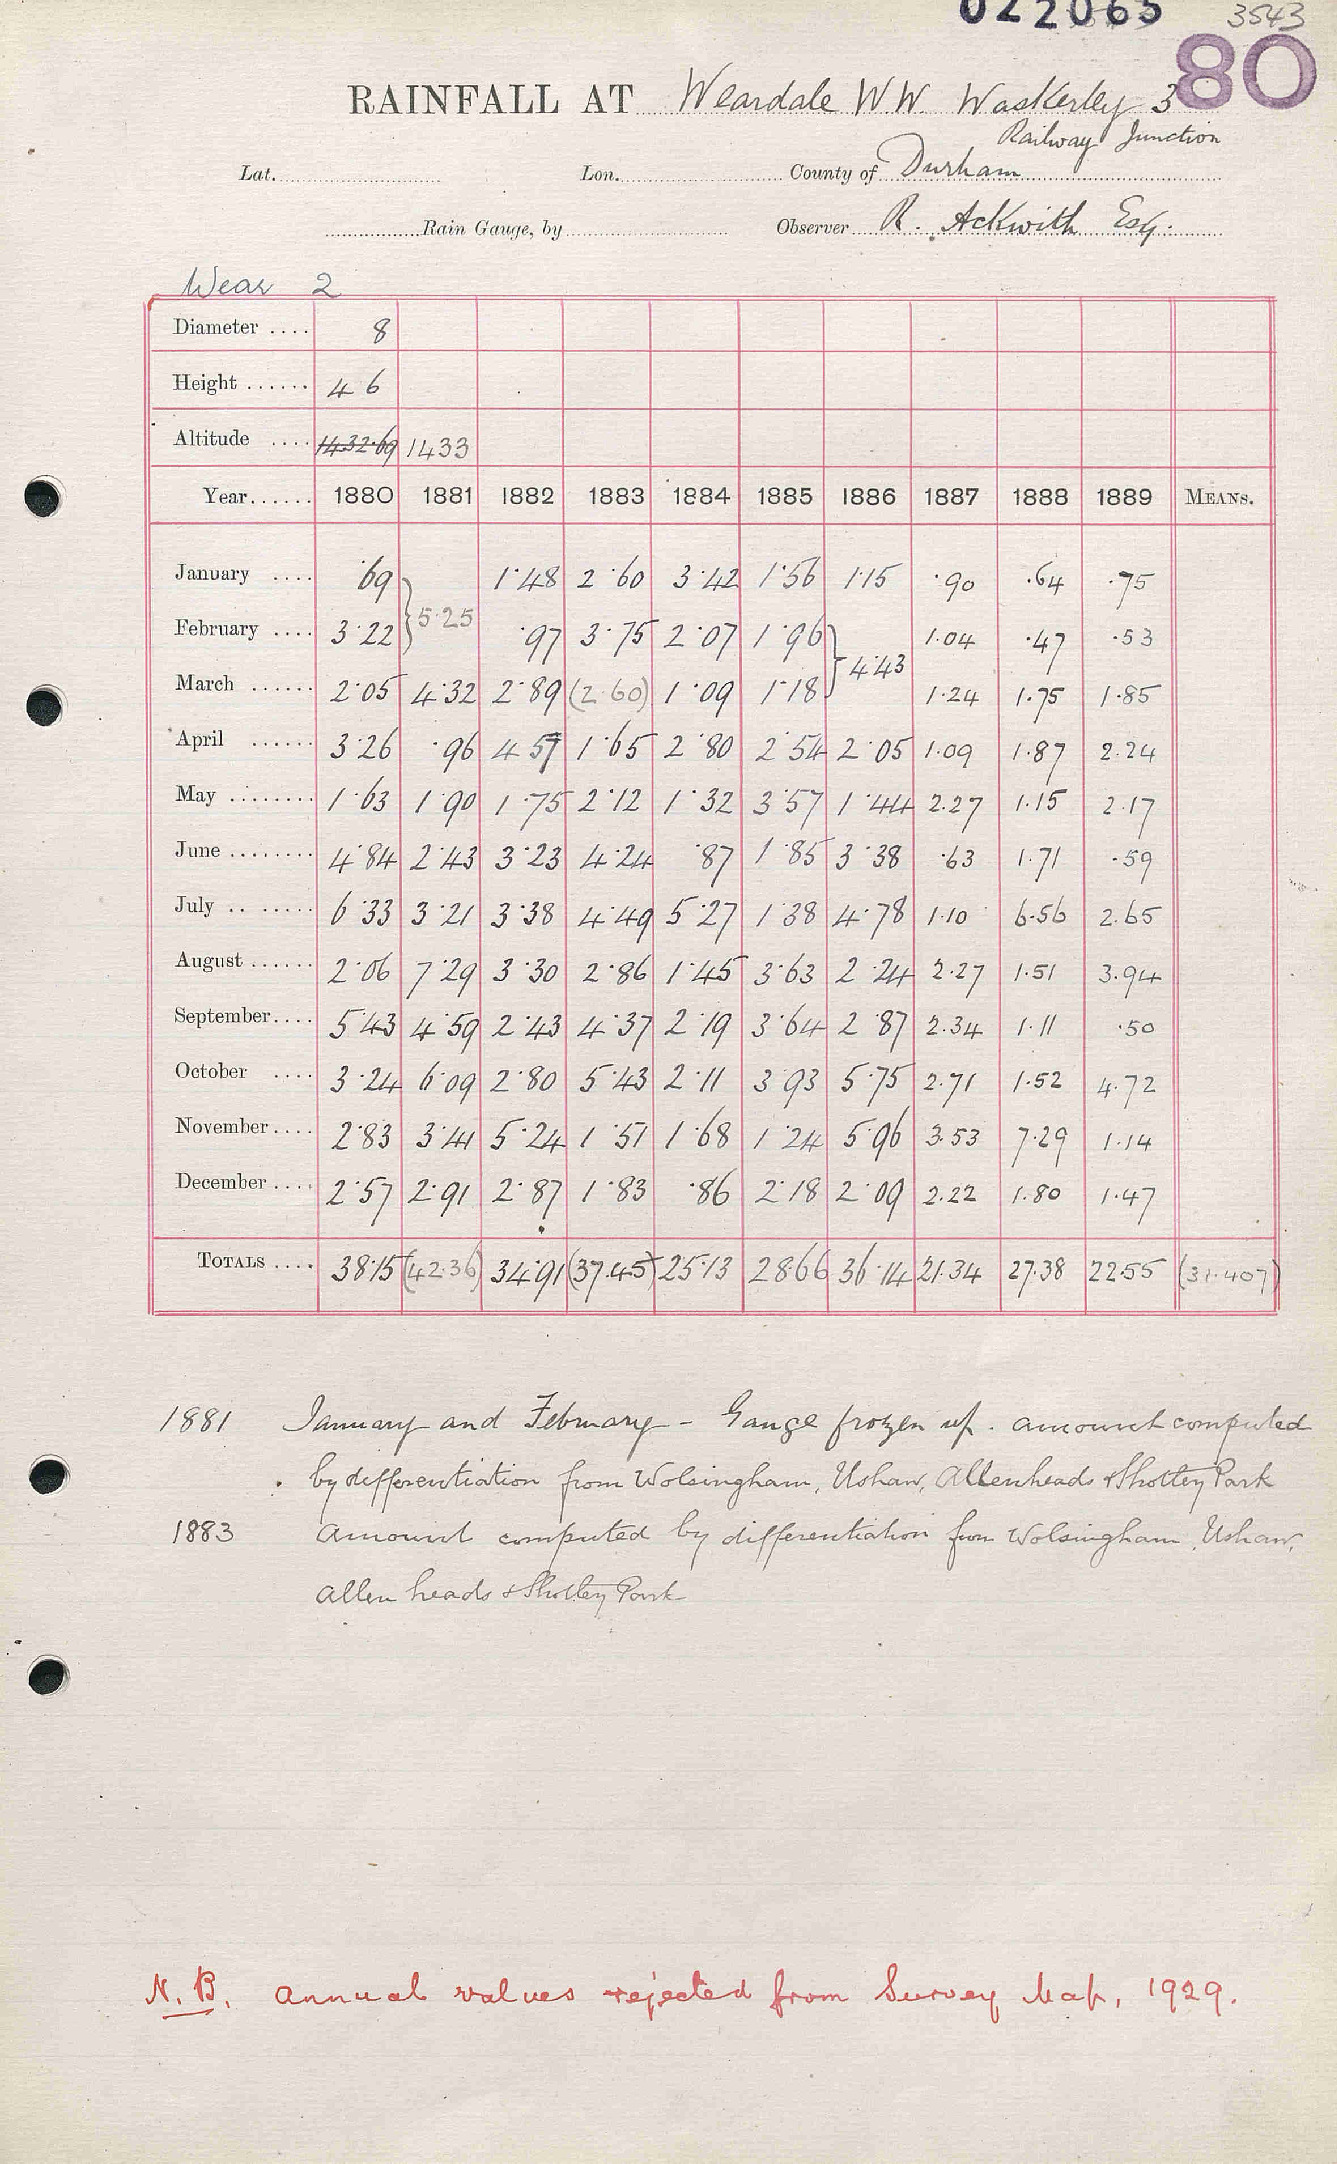 022065 3543
80
RAINFALL AT Weardale W.W. Waskerley 3
Railway Junction
Lat. Lon. County of Durham
Rain Gauge, by Observer R. Ackwith Esq.
Wear 2
Diameter .... 8
Height ...... 4 6
Altitude .... 1432·69 1433
Year...... 1880 1881 1882 1883 1884 1885 1886 1887 1888 1889 MEANS.
January .... ·69 } 5·25 1·48 2·60 3·42 1·56 1·15 ·90 ·64 ·75
February .... 3·22 ·97 3·75 2·07 1·96 } 4·43 1.04 ·47 ·53
March ...... 2·05 4·32 2·89 (2·60) 1·09 1·18 1·24 1·75 1·85
April ...... 3·26 ·96 4·57 1·65 2·80 2·54 2·05 1·09 1·87 2·24
May ........ 1·63 1·90 1·75 2·12 1·32 3·57 1·44 2.27 1·15 2·17
June ........ 4·84 2·43 3·23 4·24 ·87 1·85 3·38 ·63 1·71 ·59
July .. ...... 6·33 3·21 3·38 4·49 5·27 1·38 4·78 1·10 6·56 2·65
August ...... 2·06 7·29 3·30 2·86 1·45 3·63 2·24 2·27 1·51 3·94
September.... 5·43 4·59 2·43 4·37 2·19 3·64 2·87 2·34 1·11 ·50
October .... 3·24 6·09 2·80 5·43 2·11 3·93 5·75 2·71 1·52 4·72
November.... 2·83 3·41 5·24 1·51 1·68 1·24 5·96 3·53 7·29 1·14
December .... 2·57 2·91 2·87 1·83 ·86 2·18 2·09 2.22 1·80 1·47
TOTALS .... 38·15 (42·36) 34·91 (37·45) 25·13 28·66 36·14 21·34 27·38 22·55 (31·407)
1881 January and February - Gauge frozen up. amount computed
by differentiation from Wolsingham, Ushaw, Allenheads & Shotley Park
1883 Amount computed by differentiation from Wolsingham, Ushaw,
Allen heads & Shotley Park
N.B. Annual values rejected from Survey Map, 1929.